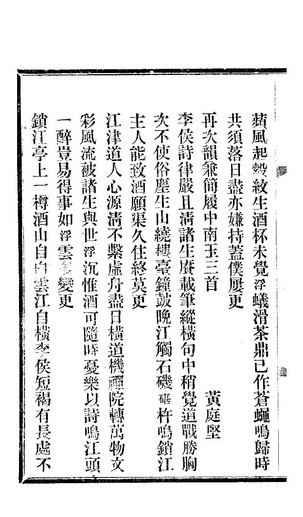 蘋風起縠紋生酒杯未覺浮蟻滑茶鼎已作蒼蠅鳴歸時
共須落日盡亦嫌持蓋僕屢更
再次韻兼簡履中南玉三首
黃庭堅
李侯詩律嚴且淸諸生賡載筆縱橫句中稍覺道戰勝胸
次不使俗塵生山繞樓臺鐘鼓晚江觸石磯碪杵鳴鎖江
主人能致酒願渠久住終莫更
江津道人心源淸不繫虛舟盡日橫道機禪院轉萬物文
彩風流被諸生與世浮沉惟酒可隨時憂樂以詩鳴江頭
一醉豈易得事如浮雲多變更
鎖江亭上一樽酒山自白雲江自橫李侯短褐有長處不